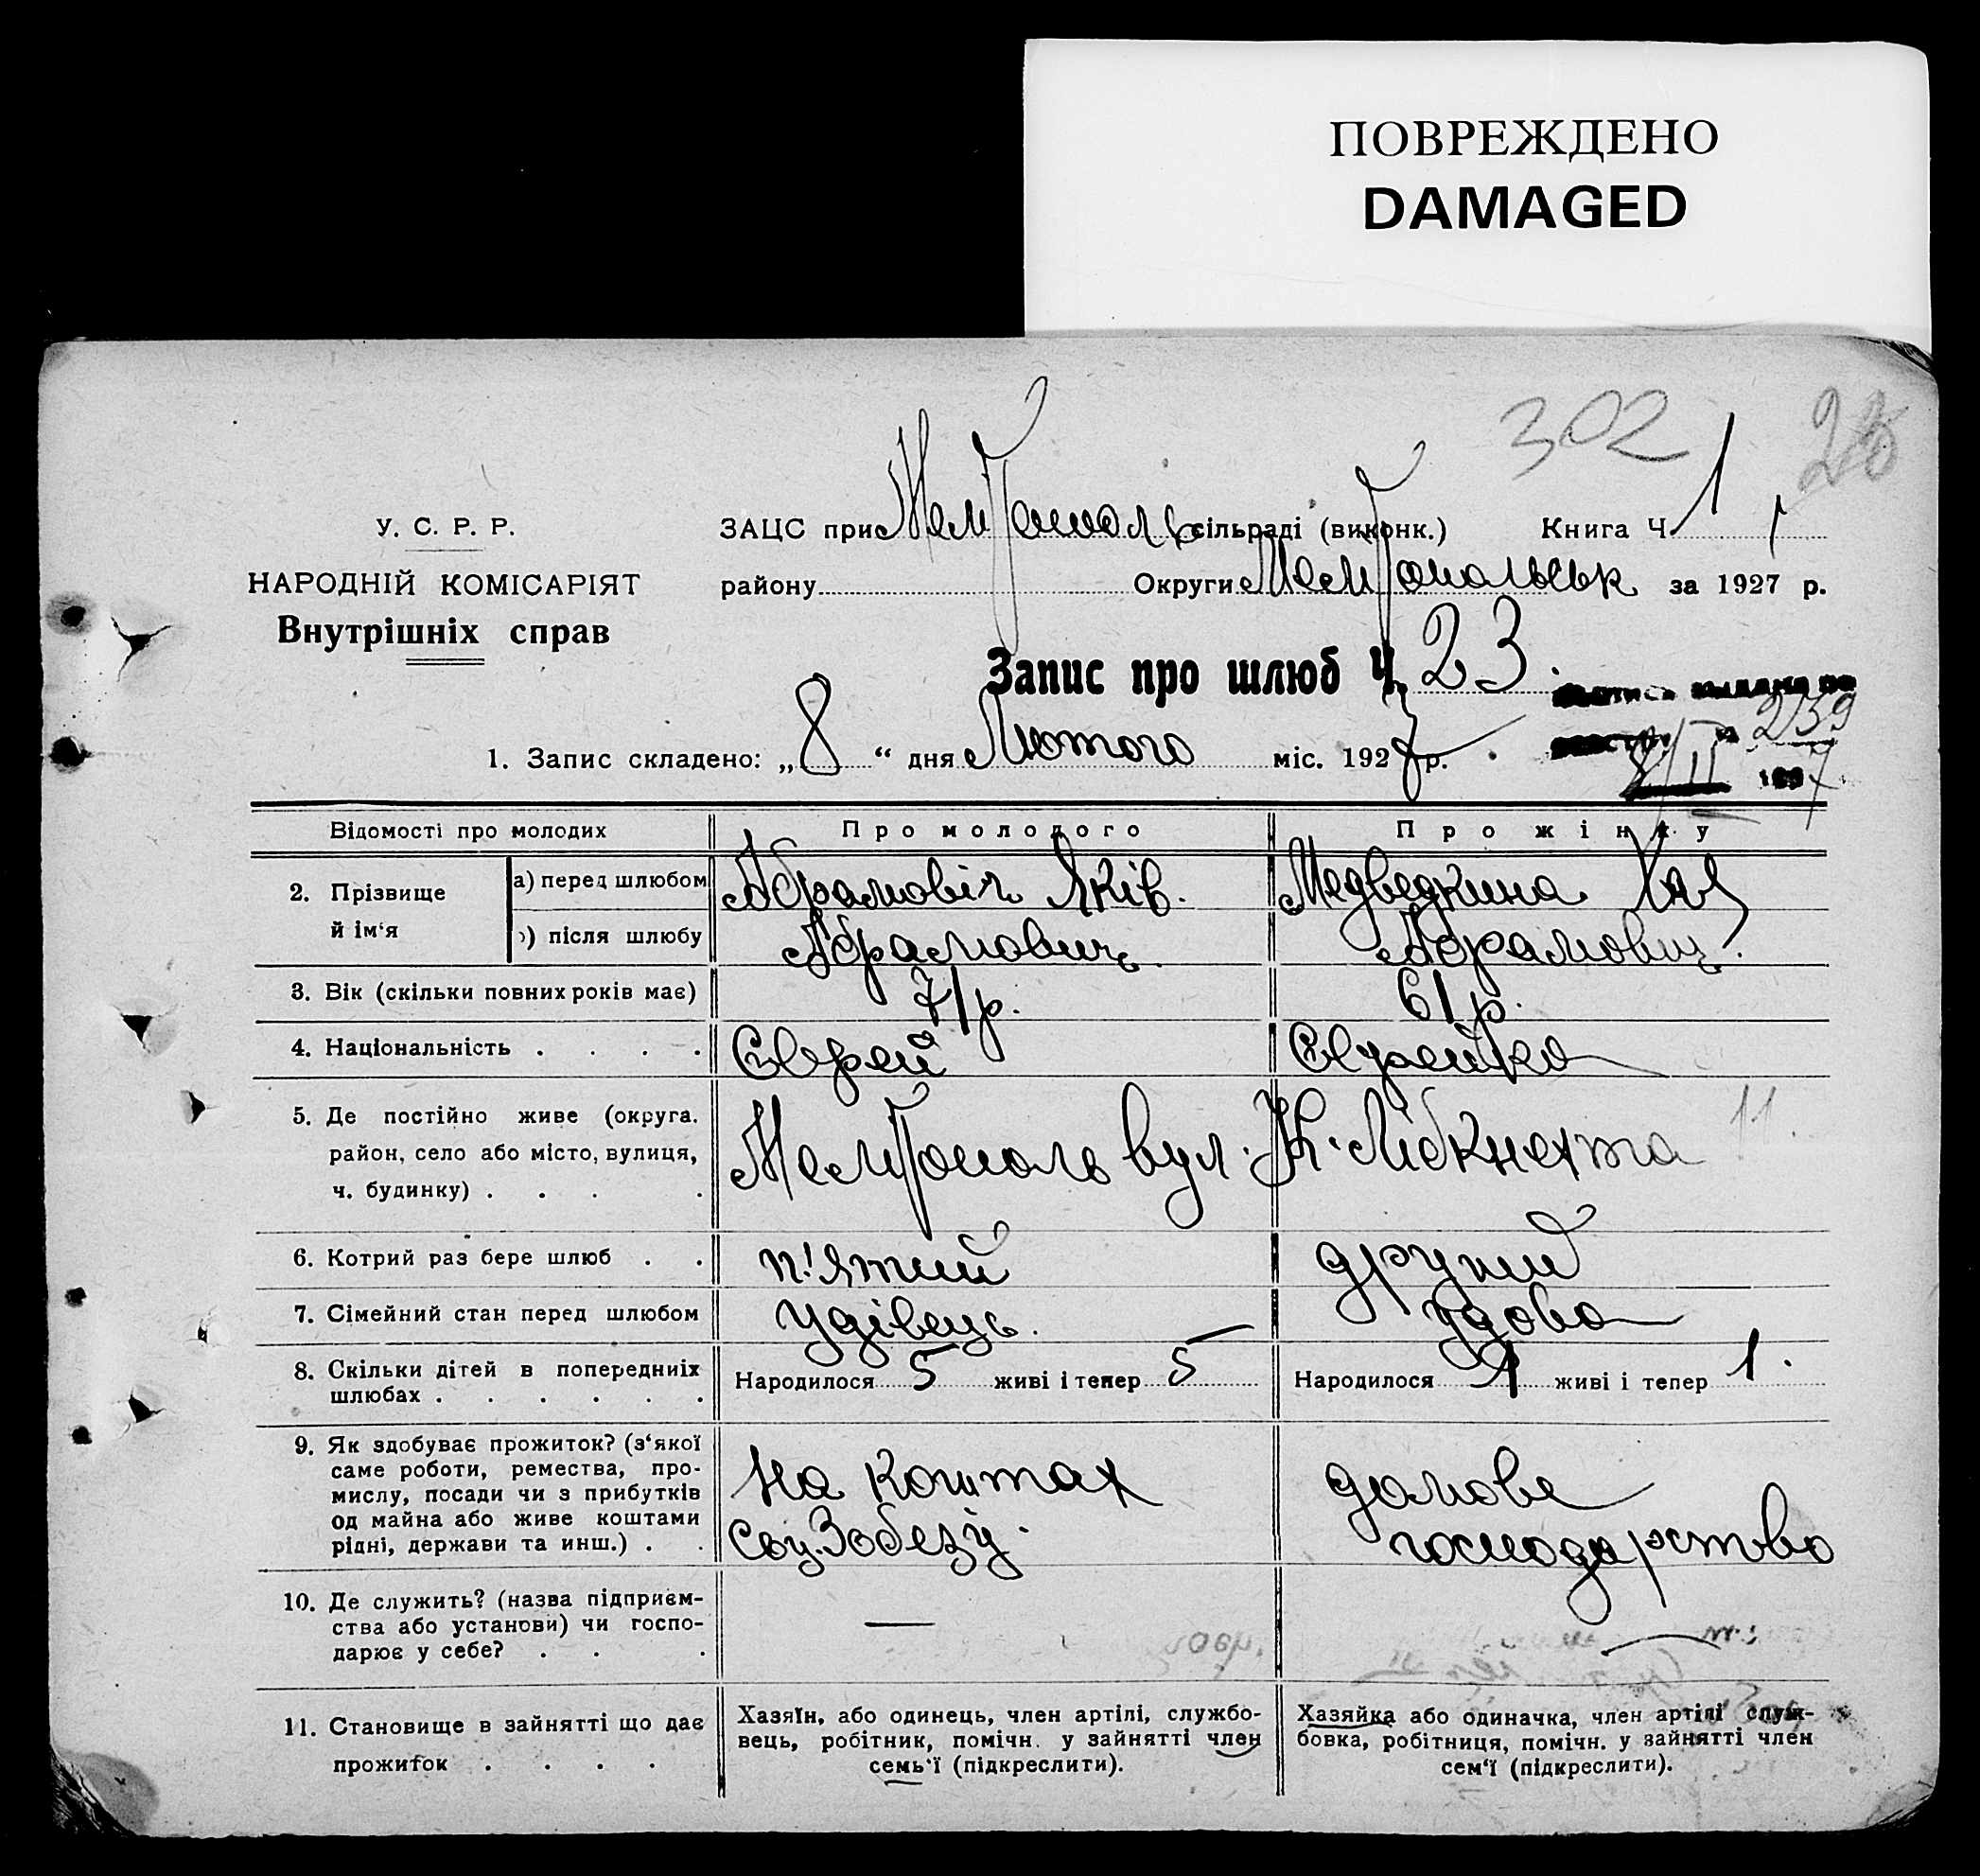 ПОВРЕЖДЕНО
DAMAGED
302
У. С. Р. Р.
ЗАЦС при Мелітополь сільраді (виконк.) Книга Ч 1
НАРОДНІЙ КОМІСАРІЯТ
району Округи Мелітопольськ за 1927 р.
Внутрішніх справ
Запис про шлюб Ч. 23
239
1. Запис складено: „ 8 “ дня Лютого міс. 1927 р.
Відомості про молодих Про молодого Про жінку
2. Прізвище й ім‘я
а) перед шлюбом Абрамовіч Яків. Медведкина Хая
б) після шлюбу Абрамович Абрамович.
3. Вік (скільки повних років має) 71 р. 61 р.
4. Національність . . . . Єврей Єврейка
5. Де постійно живе (округа.
район, село або місто, вулиця,
ч. будинку) . . . .
Мелітополь вул. К. Лібкнехта 11.
6. Котрий раз бере шлюб . . п'ятий другий
7. Сімейний стан перед шлюбом удівець. удова
8. Скільки дітей в попередниіх
шлюбах . . . . . .
Народилося 5 живі і тепер 5 Народилося 1 живі і тепер 1.
9. Як здобуває прожиток? (з‘якої
саме роботи, ремества, про-
мислу, посади чи з прибутків
од майна або живе коштами
рідні, держави та инш.) . .
На коштах
Соц. Забезу.
домове
господарство
10. Де служить? (назва підприєм-
ства або установи) чи госпо-
дарює у себе? . . .
—
11. Становище в зайнятті що дає
прожиток . . . .
Хазяїн, або одинець, член артілі, службо-
вець, робітник, помічн. у зайнятті член
семь‘ї (підкреслити).
Хазяйка або одиначка, член артілі служ-
бовка, робітниця, помічн. у зайнятті член
сем‘ї (підкреслити).